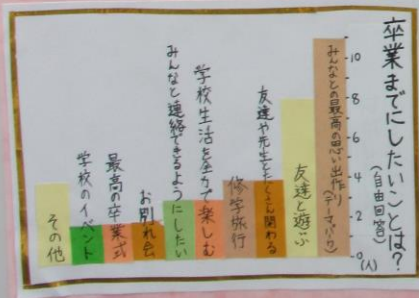 卒業までにしたいことは？
(自由回答)
10
8
6
4
2
0
(人)
みんなとの最高の思い出作り
(テーマパーク)
友達と遊ぶ
友達や先生とたくさん関わる
修学旅行
学校生活を全力で楽しむ
みんなと連絡できるようにしたい
お別れ会
最高の卒業式
学校のイベント
その他